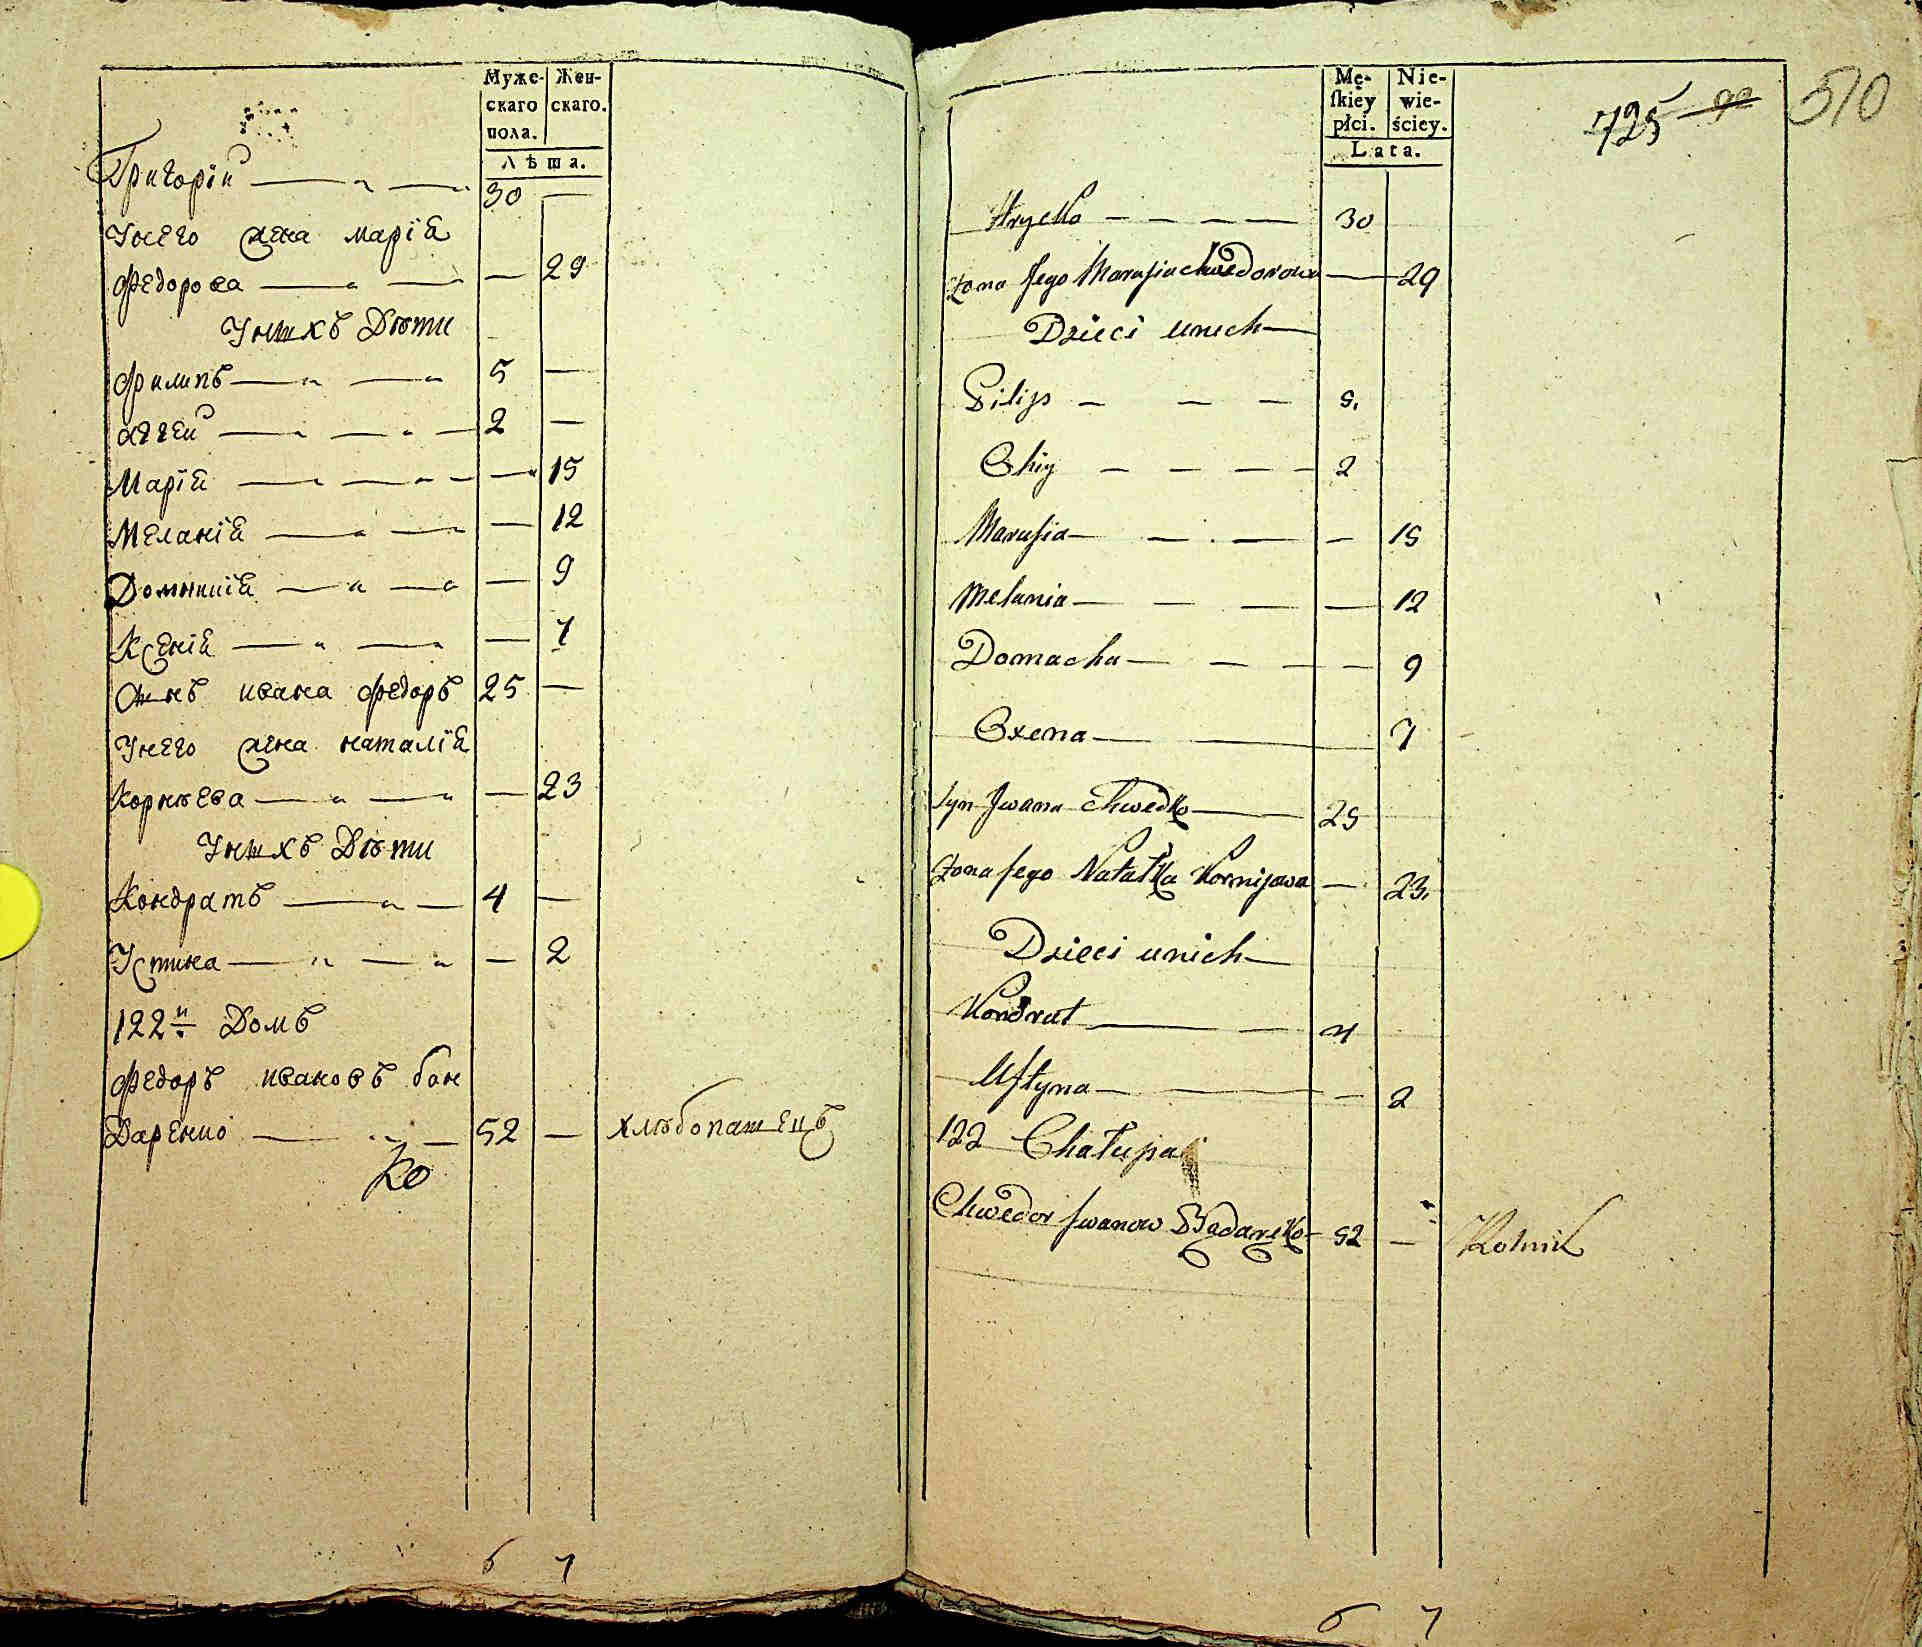 Муже- Жен-
скаго скаго.
пола.
Лѣта.
Григорій 30 —
Унего жена марїа
Федорова — 29
Унихъ Дѣти
Филипъ 5 —
аггей 2 —
Марїа — 15
Меланїа — 12
Домникїа — 9
Ксенїа — 7
Сынъ ивана федоръ 25 —
Унего жена наталїа
Корнѣева — 23
Унихъ Дѣти
Кондратъ 4 —
Устина — 2
122й Домъ
Федоръ ивановъ бон
Даренко 52 — хлѣбопашецъ
Ко
6 7
725 510
Mę- Nie-
skiey wie-
płci. ściey.
Lata.
Hrycko 30
Żona Jego Marusia Chwedorowa — 29
Dzieci unich
Pilip 5.
Ohiy 2
Marusia — 15
Melania — 12
Domacha — 9
Oxena 7
Syn Jwana Chwedko 25
Żona Jego Natałka Kornijowa — 23.
Dzieci unich
Kondrat 4
Ustyna — 2
122 Chałupa
Chwedor Jwanow Bądareko 52 — Rolnik
6 7